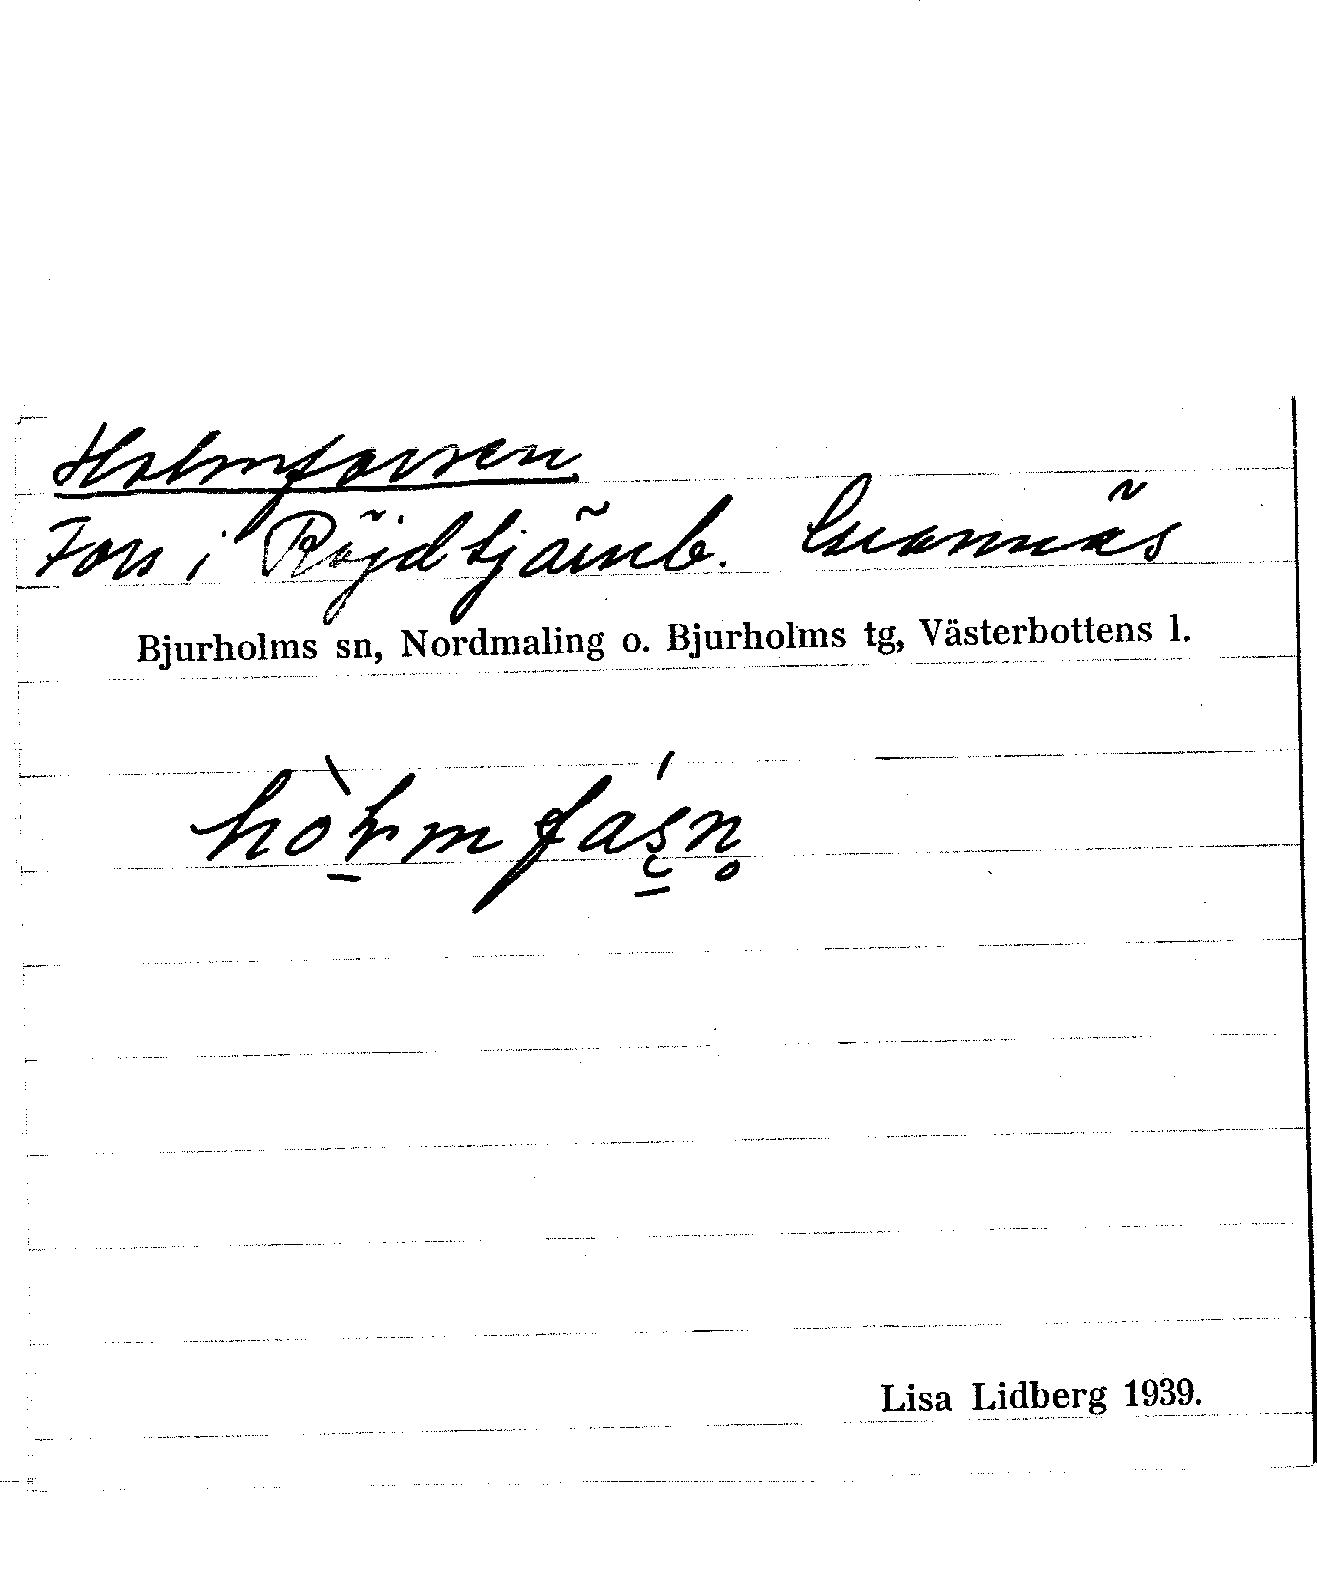 Holmforsen
Fors i Röjdtjärnb.
Bjurholms sn, Nordmaling o. Bjurholms tg, Västerbottens l.
Lisa Lidberg 1939.